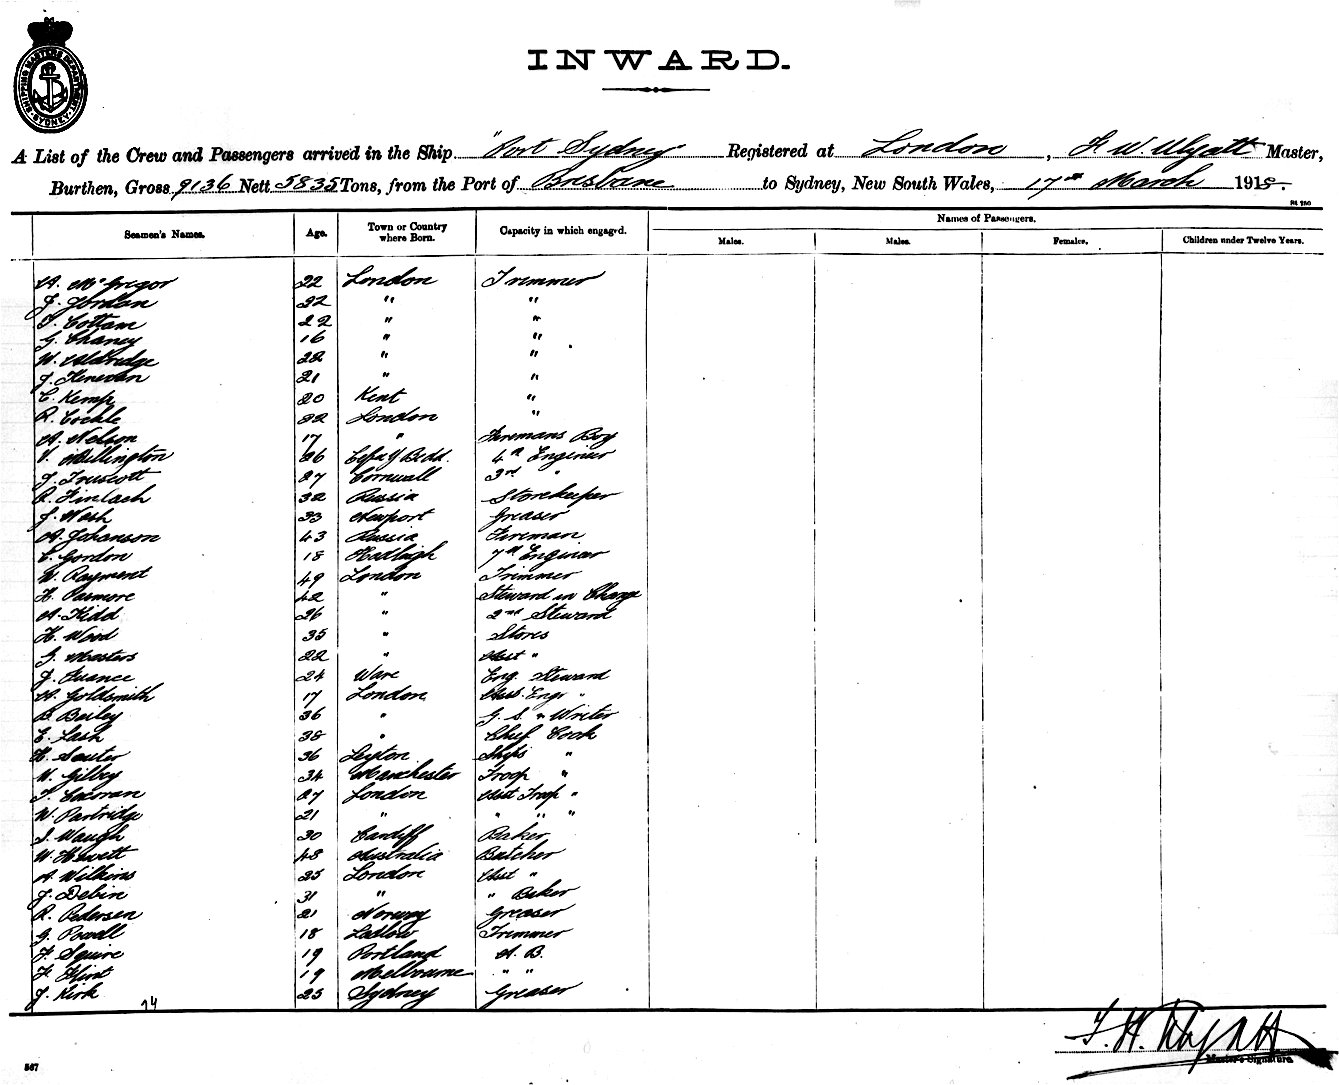 SHIPPING MASTERS DEPARTMENT SYDNEY
INWARD.
A List of the Crew and Passengers arrived in the Ship "Port Sydney" Registered at London, F. W. Wyatt Master,
Burthen, Gross 9136 Nett 5835 Tons, from the Port of Brisbane to Sydney, New South Wales, 17th March 1918.
Seamen's Names. Age. Town or Country where Born. Capacity in which engaged. Names of Passengers.
Males. Males. Females. Children under Twelve Years.
A. McGrigor 22 London Trimmer
J. Jordan 22 " "
T. Cottam 22 " "
G. Chaney 16 " "
W. Aldridge 22 " "
J. 21 " "
C. Kemp 20 Kent "
R. Cockle 22 London "
A. Nelson 17 " Firemans Boy
V. Millington 26 4th Engineer
J. Truscott 27 Cornwall 3rd "
R. Finlach 32 Russia Storekeeper
J. Nash 33 Newport Greaser
A. Johanson 43 Russia Fireman
C. Gordon 18 Hadleigh 7th Engineer
W. Rayment 49 London Trimmer
H. Parmore 42 " Steward in Charge
A. Kidd 26 " 2nd Steward
H. Wood 35 " Stores
G. Masters 22 " Asst "
J. Fuance 24 Ware Eng. Steward
A. Goldsmith 17 London Ass. Engr "
B. Bailey 36 " G. S. & Writer
E. Lash 38 " Chief Cook
H. Souter 36 Leyton Ships "
W. Gilbey 34 Manchester Troop "
T. Cocoran 27 London Asst Troop "
W. Partridge 21 " " " "
S. Waugh 30 Cardiff Baker
W. Hewett 48 Australia Butcher
A. Wilkins 25 London Asst "
J. Debin 31 " " Baker
R. Pedersen 21 Norway Greaser
G. Powell 18 Ludlow Trimmer
F. Squire 19 Portland A. B.
F. Flint 19 Melbourne " "
J. Kirk 25 Sydney Greaser
74
F. W. Wyatt
Master's Signature.
567